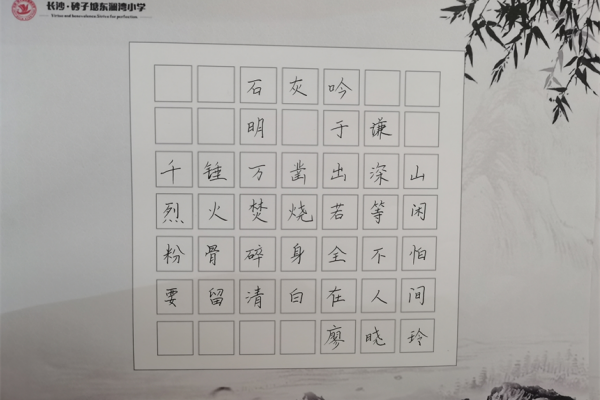 长沙·砂子塘东澜湾小学
石灰吟
明 于谦
千锤万凿出深山
烈火焚烧若等闲
粉骨碎身全不怕
要留清白在人间
廖晓玲